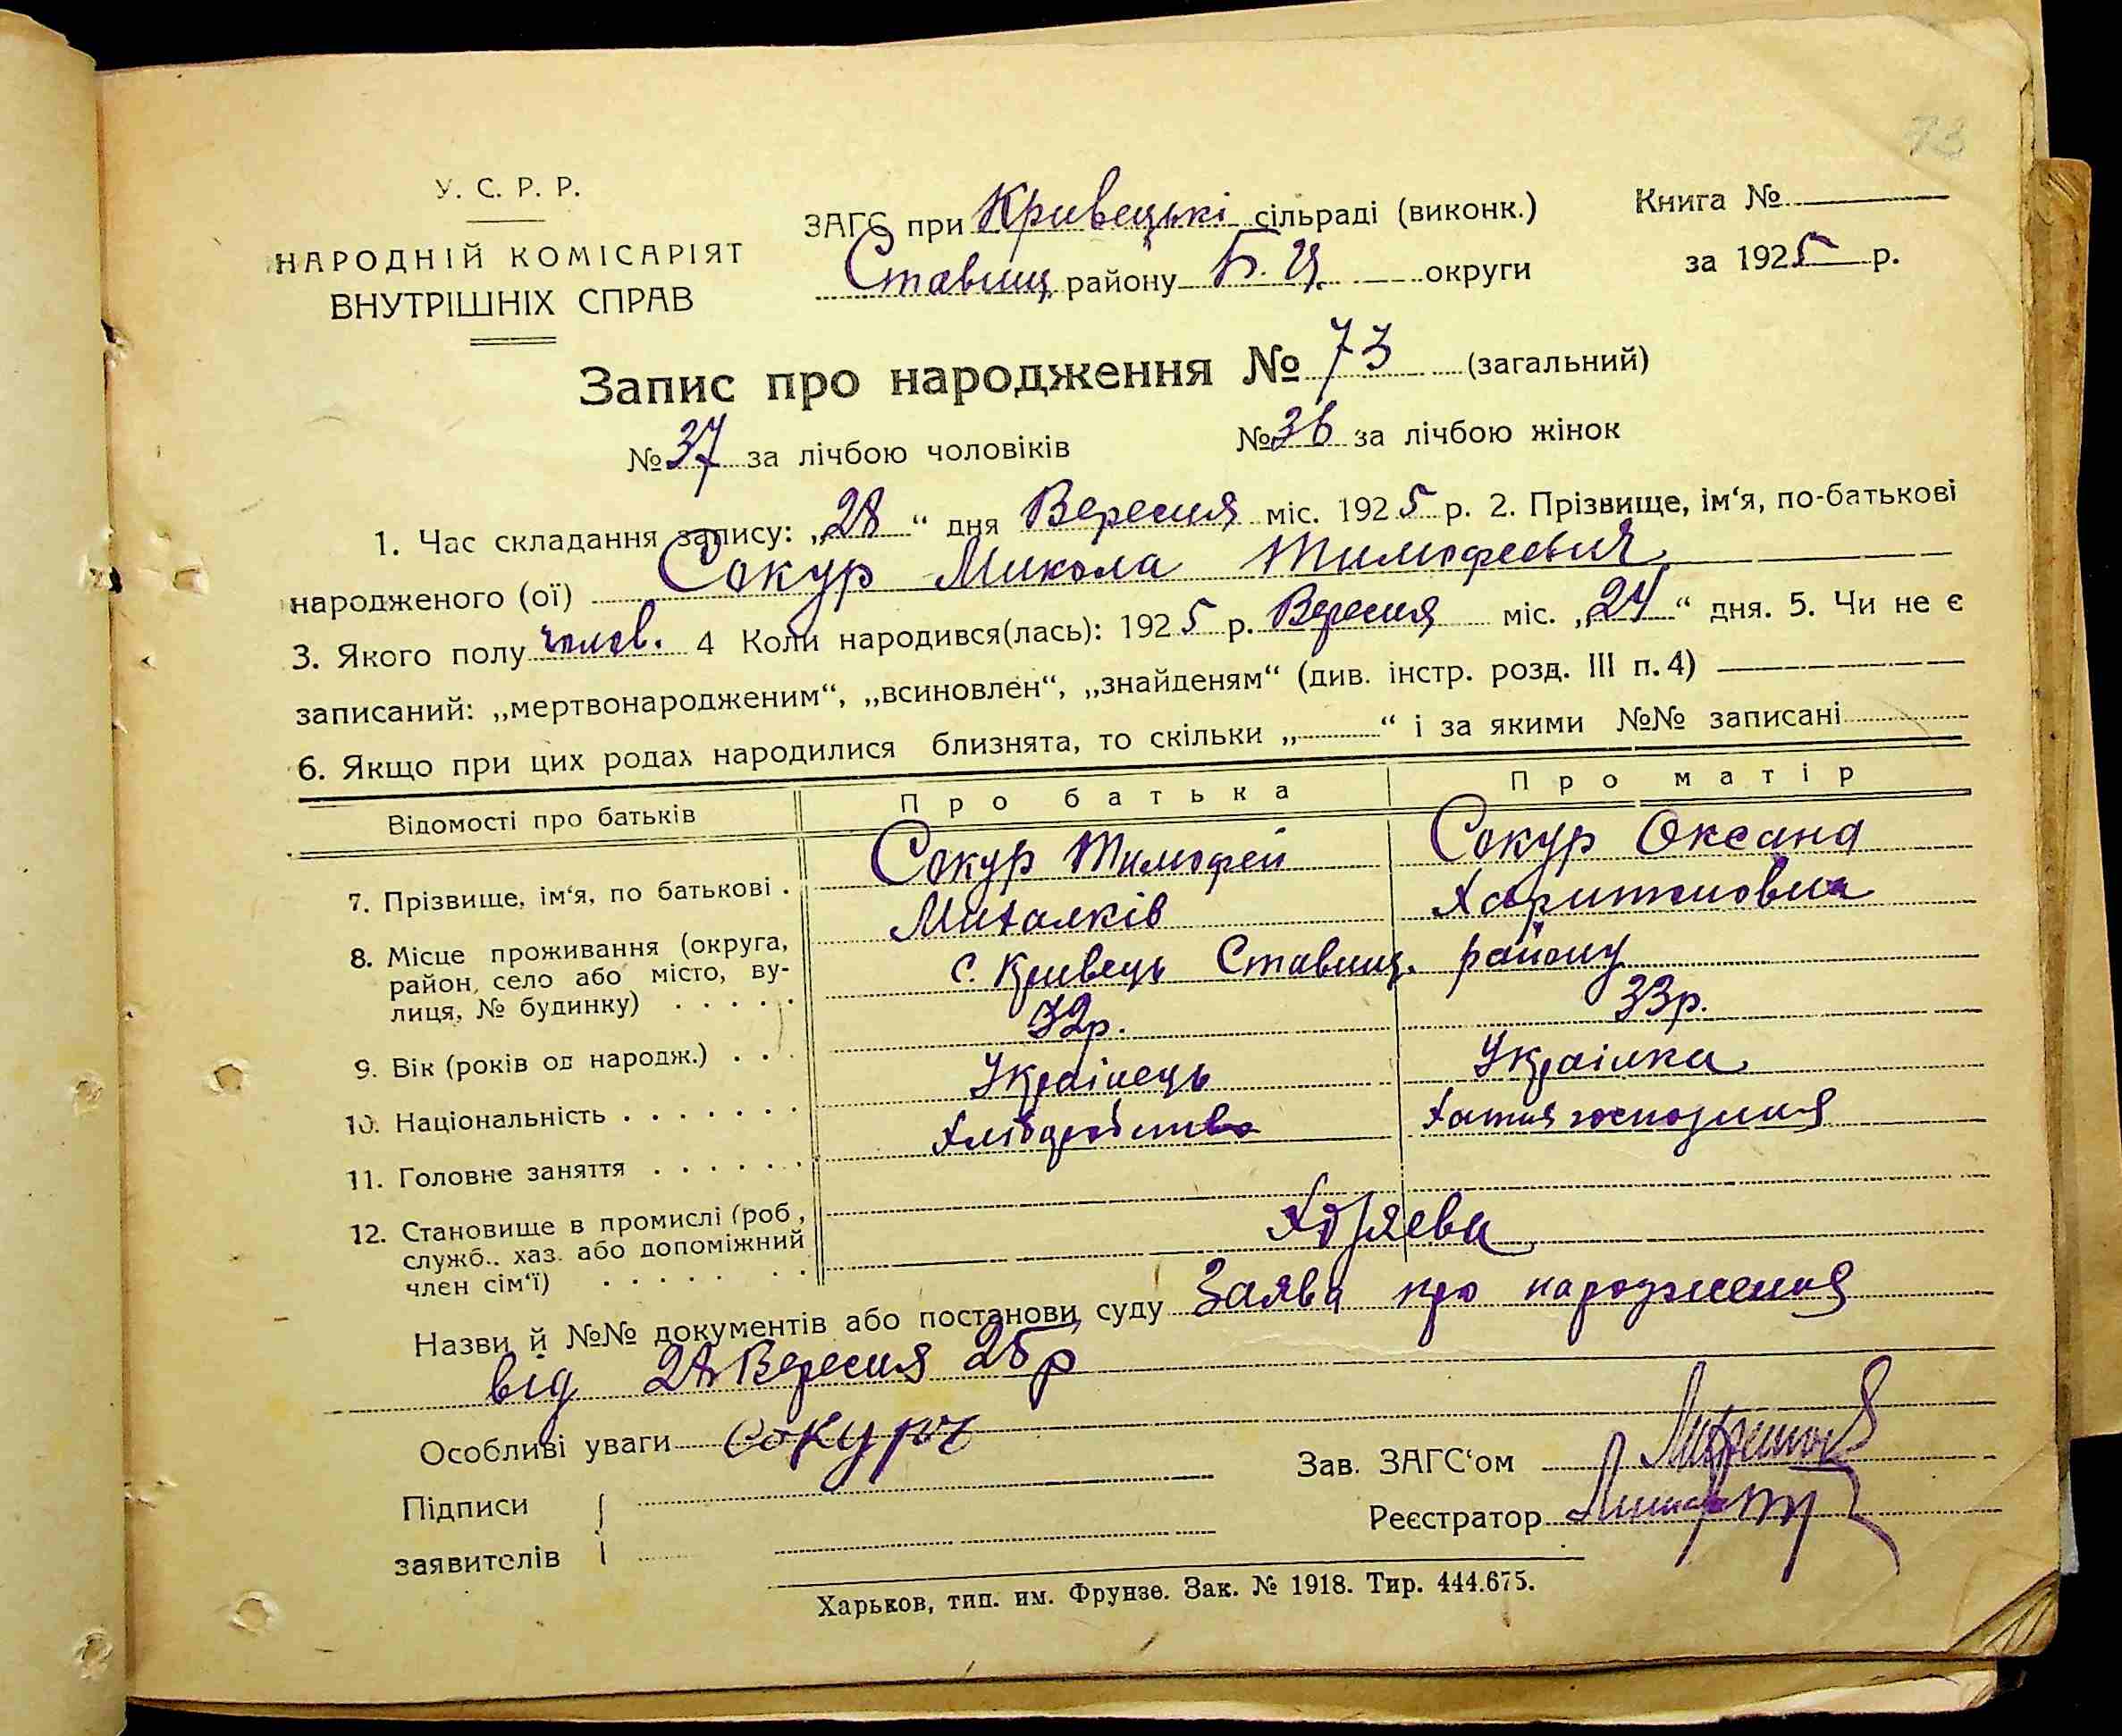 73
У. С. Р. Р.
НАРОДНІЙ КОМІСАРІЯТ
ВНУТРІШНІХ СПРАВ
ЗАГС при Кривецькі сільраді (виконк.)
Ставищ. району Б. Ц. округи
Книга №
за 1925 р.
Запис про народження № 73 (загальний)
№ 37 за лічбою чоловіків № 36 за лічбою жінок
1. Час складання запису: „28“ дня Вересня міс. 1925 р. 2. Прізвище, ім‘я, по-батькові
народженого (ої) Сокур Микола Тимофеевич
3. Якого полу чолов. 4 Коли народився(лась): 1925 р. Вересня міс. „24“ дня. 5. Чи не є
записаний: „мертвонародженим“, „всиновлен“, „знайденям“ (див. інстр. розд. III п. 4)
6. Якщо при цих родах народилися близнята, то скільки „ “ і за якими №№ записані
Відомості про батьків Про батька Про матір
7. Прізвище, ім‘я, по батькові . Сокур Тимофей Михалків Сокур Оксана Харитоновна
8. Місце проживання (округа,
район, село або місто, ву-
лиця, № будинку) . . . . . с. Кривець Ставищ. району
9. Вік (років од народж.) . . . 32р. 33р.
10. Національність . . . . . . . Українець Українка
11. Головне заняття . . . . . . . Хліборобство Хатня господиня
12. Становище в промислі (роб.,
служб.. хаз. або допоміжний
член сім‘ї) . . . . . . . Хозяева
Назви й №№ документів або постанови суду Заява про народження
від 28 Вересня 25 р
Особливі уваги Сокуръ
Підписи
заявителів
Зав. ЗАГС‘ом
Реєстратор
Харьков, тип. им. Фрунзе. Зак. № 1918. Тир. 444.675.